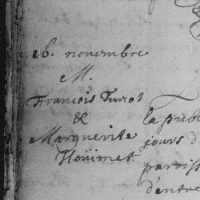 16. novembre
M.
François Turot
&
Marguerite
Houimet
la publ
jours d
paroiss
d'entre